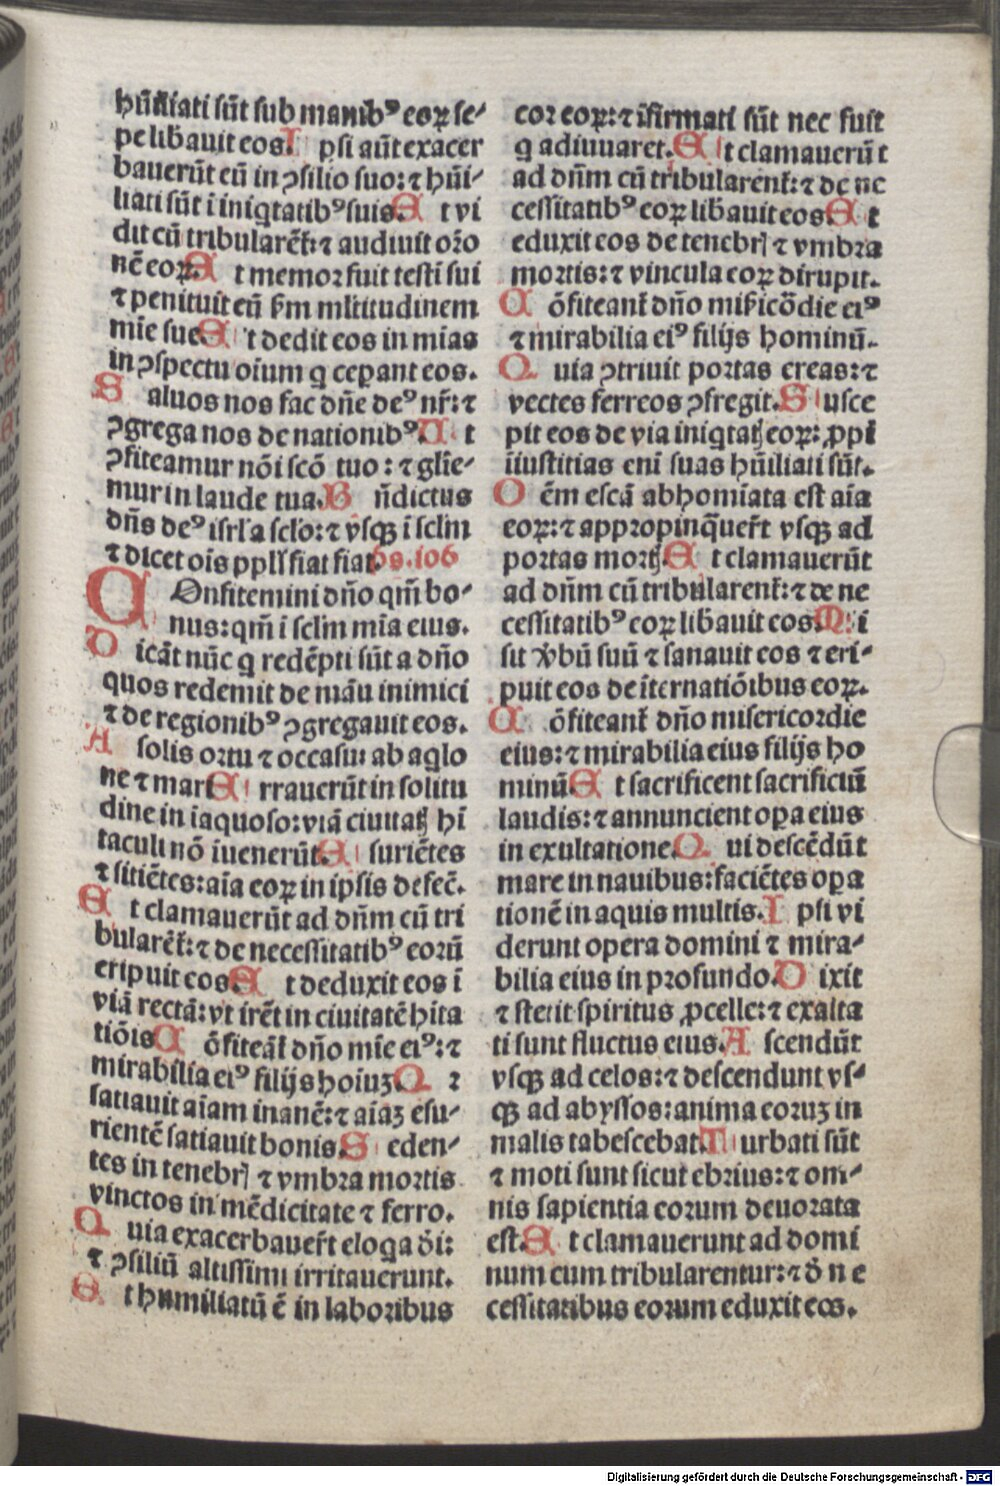 hũiliati sũt sub manibꝰ eoꝝ se-
pe lib̃auit eos. I psi aũt exacer
bauerũt eũ in ↄsilio suo: ⁊ hũi-
liati sũt ĩ iniqtatibꝰ suis. E t vi
dit cũ tribularẽt̃: ⁊ audiuit oꝛ̃o
nẽ eoꝝ. E t memor fuit testĩ sui
⁊ penituit eũ ẜm ml̃titudinem
mĩe sue. E t dedit eos in mĩas
in ↄspectu oĩum q ceꝑant eos.
S aluos nos fac dñe deꝰ nr̃: ⁊
ↄgrega nos de nationibꝰ. U t
ↄfiteamur nõi scõ tuo: ⁊ gl̃ie-
mur in laude tua. B ñdictus
dñs deꝰ isrl̃ a sclo: ⁊ vsqꝫ ĩ sclm̃
⁊ dicet oĩs ppl̃s fiat fiat. ps. 106
C Onfitemini dño qm̃ bo-
nus: qm̃ ĩ sclm̃ mĩa eius.
D icãt nũc q redẽpti sũt a dño
quos redemit de mãu inimici
⁊ de regionibꝰ ↄgregauit eos.
A solis ortu ⁊ occasu: ab aq̃lo
ne ⁊ mari. E rrauerũt in solitu
dine in ĩaquoso: viã ciuitatꝭ hĩ
taculi nõ ĩuenerũt. E suriẽtes
⁊ sitiẽtes: aĩa eoꝝ in ipsis defeč.
E t clamauerũt ad dñm cũ tri
bularẽt̃: ⁊ de necessitatibꝰ eorũ
eripuit eos. E t deduxit eos ĩ
viã rectã: vt irẽt in ciuitatẽ hĩta
tiõis. C õfiteãt̃ dño mĩe eiꝰ: ⁊
mirabilia eiꝰ filijs hoĩuꝫ. Q ꝛ
satiauit aĩam inanẽ: ⁊ aĩaꝫ esu-
rientẽ satiauit bonis. S eden-
tes in tenebrꝭ ⁊ vmbra mortis
vinctos in mẽdicitate ⁊ ferro.
Q uia exacerbauer̃t eloq̃a dĩ:
⁊ ↄsiliũ altissimi irritauerunt.
E t humiliatũ ẽ in laboribus
cor eoꝝ: ⁊ ĩfirmati sũt nec fuit
q adiuuaret. E t clamauerũt
ad dñm cũ tribularent̃: ⁊ de ne
cessitatibꝰ eoꝝ lib̃auit eos. E t
eduxit eos de tenebrꝭ ⁊ vmbra
mortis: ⁊ vincula eoꝝ dirupit.
C õfiteant̃ dño mĩs̃icõdie eiꝰ
⁊ mirabilia eiꝰ filijs hominũ.
Q uia ↄtriuit portas ereas: ⁊
vectes ferreos ↄfregit. S usce
pit eos de via iniqtatꝭ eoꝝ: ꝓpt̃
ĩiustitias enĩ suas hũiliati sũt.
O ẽm escã abhomĩata est aĩa
eoꝝ: ⁊ appropinq̃uer̃t vsqꝫ ad
portas mortꝭ. E t clamauerũt
ad dñm cũ tribularent̃: ⁊ de ne
cessitatibꝰ eoꝝ lib̃auit eos. M i
sit v̾bũ suũ ⁊ sanauit eos ⁊ eri-
puit eos de ĩternatiõibus eoꝝ.
C õfiteant̃ dño misericordie
eius: ⁊ mirabilia eius filijs ho
minũ. E t sacrificent sacrificiũ
laudis: ⁊ annuncient oꝑa eius
in exultatione. Q ui descẽdũt
mare in nauibus: faciẽtes oꝑa
tionẽ in aquis multis. I psi vi
derunt opera domini ⁊ mira-
bilia eius in profundo. D ixit
⁊ stetit spiritus ꝓcelle: ⁊ exalta
ti sunt fluctus eius. A scendũt
vsqꝫ ad celos: ⁊ descendunt vs-
qꝫ ad abyssos: anima eoruꝫ in
malis tabescebat. T urbati sũt
⁊ moti sunt sicut ebrius: ⁊ om-
nis sapientia eorum deuorata
est. E t clamauerunt ad domi
num cum tribularentur: ⁊ d̃ ne
cessitatibus eorum eduxit eos.
Digitalisierung gefördert durch die Deutsche Forschungsgemeinschaft - DFG